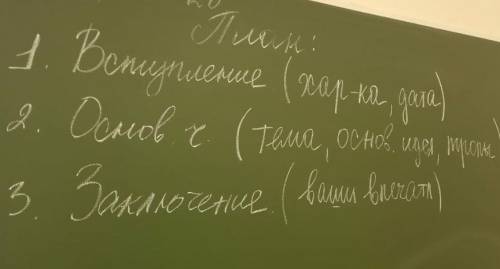 План:
1. Вступление (хар-ка, дата)
2. Основ. ч. (тема, основ. идея, тропы
3. Заключение. (ваши впечатл)